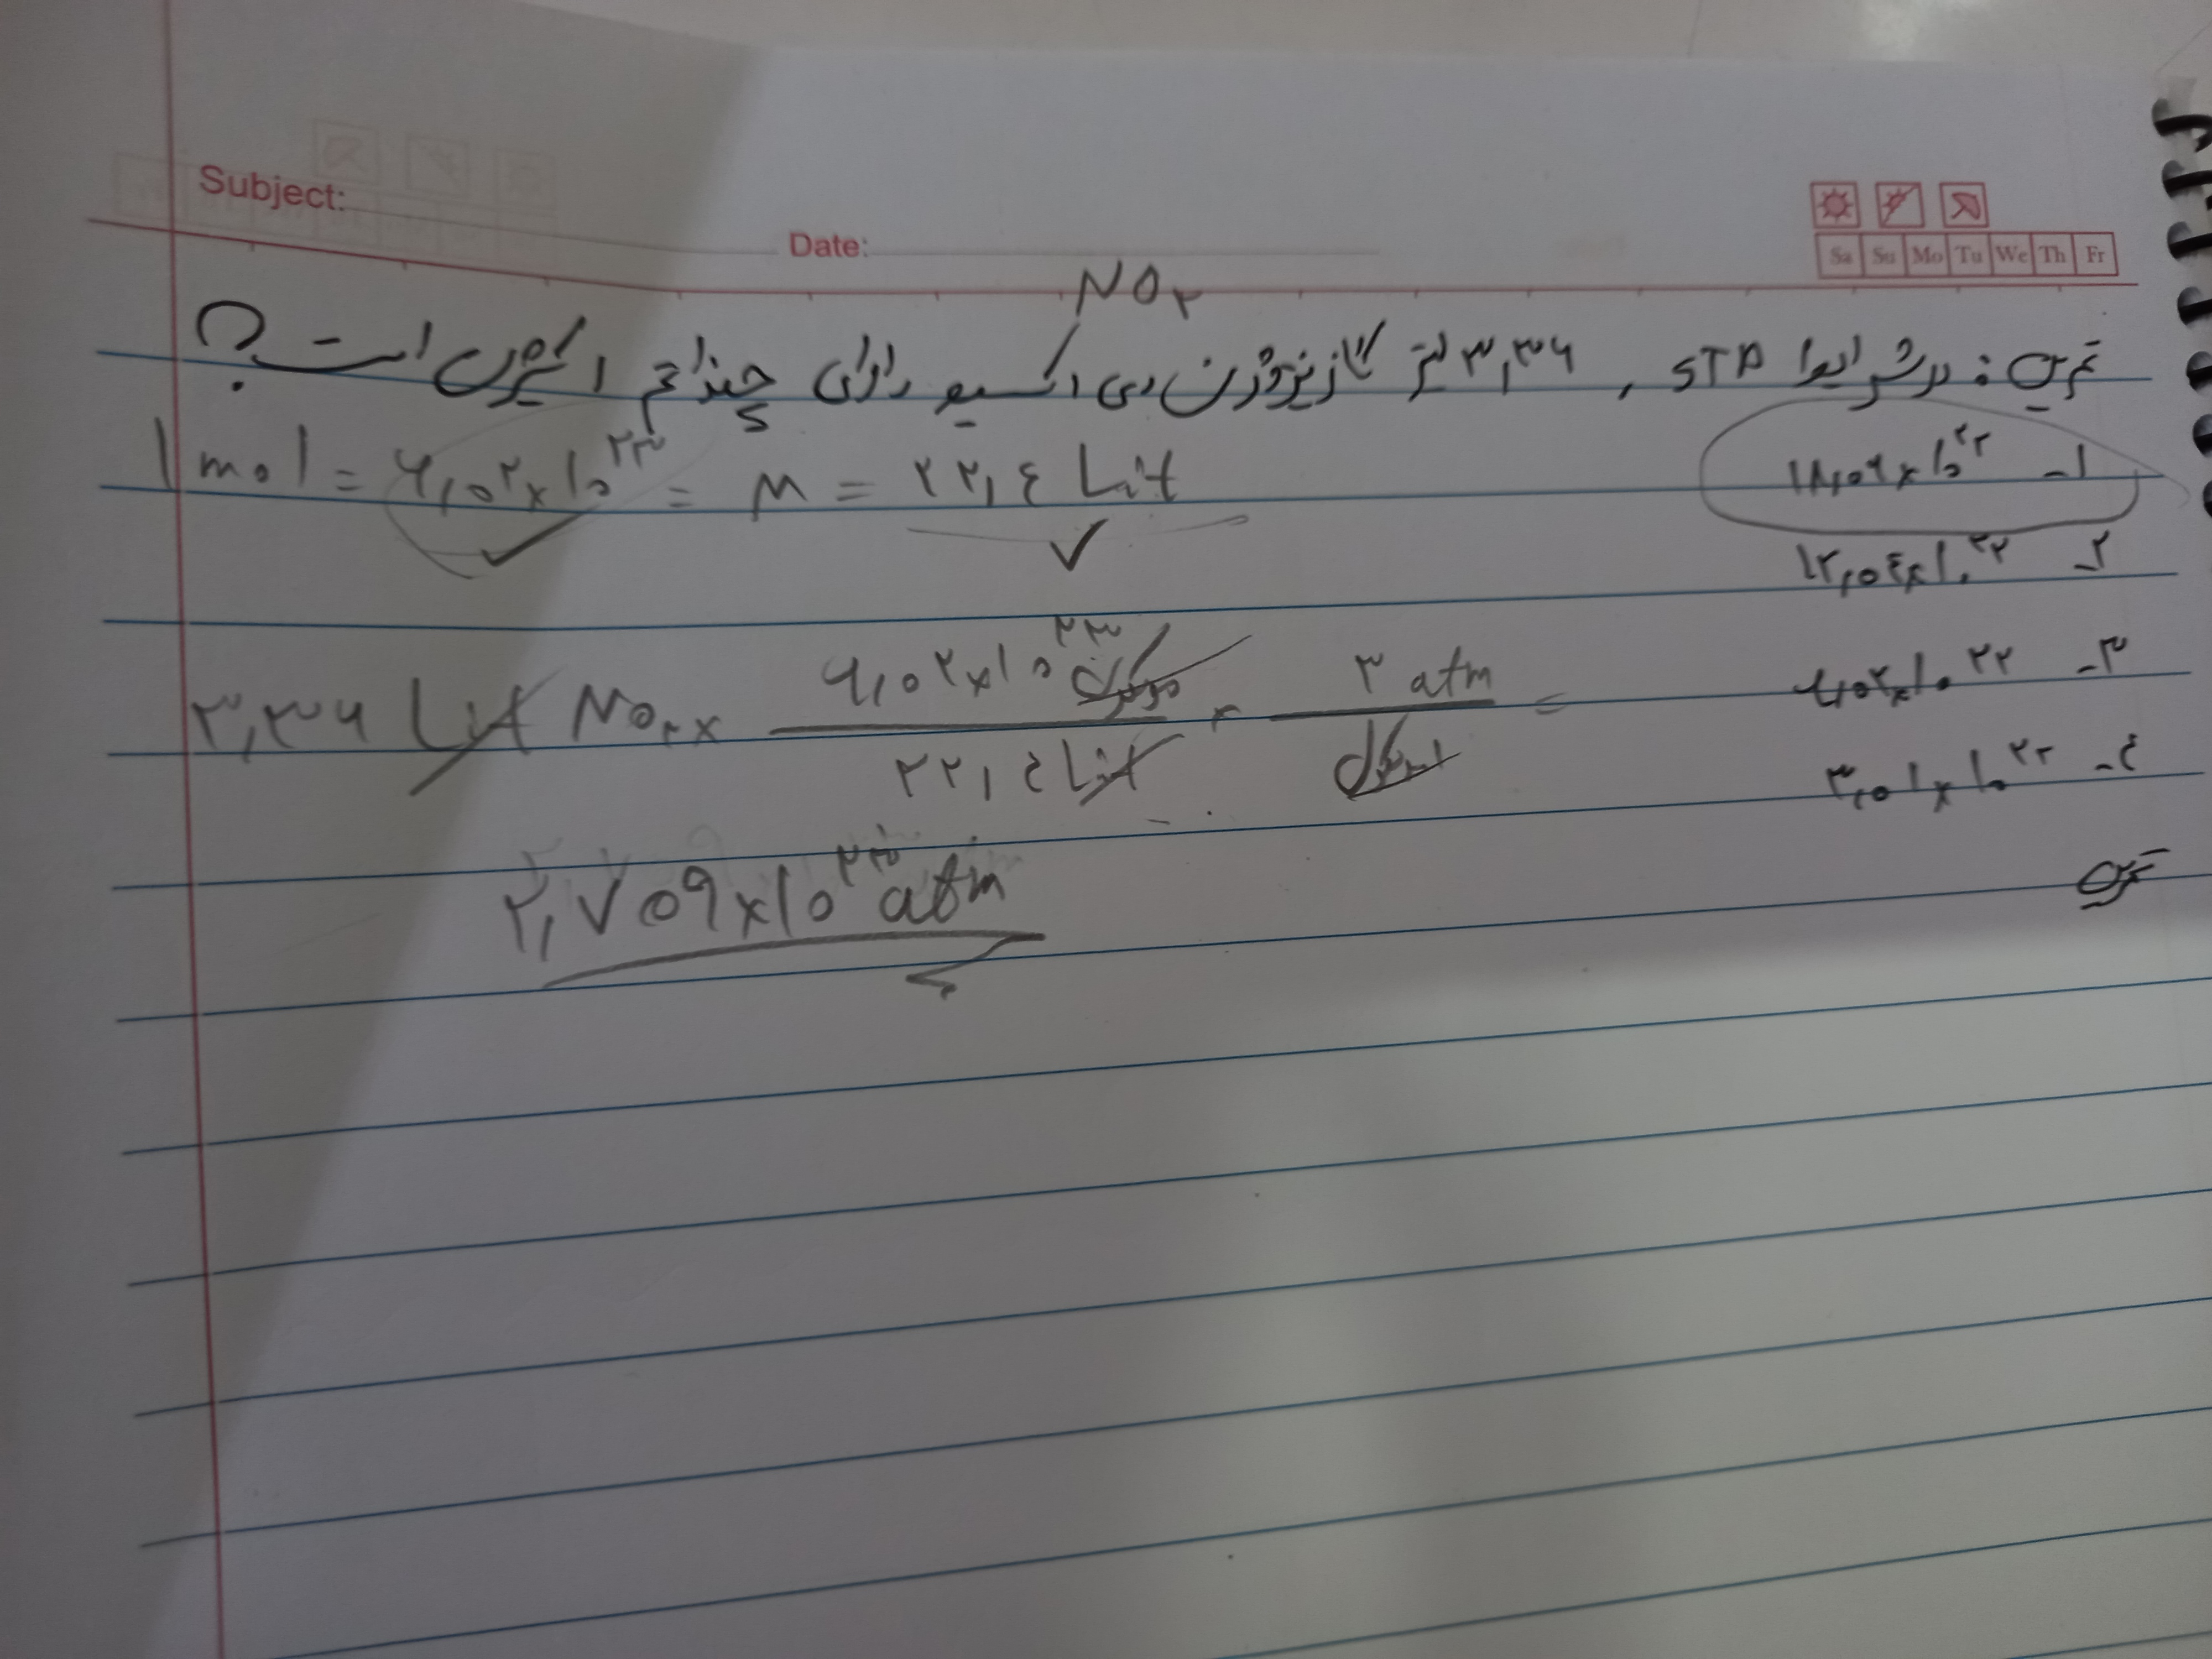 Subject:
Date:
Sa Su Mo Tu We Th Fr
NO۲
تمرین: در شرایط STP , ۳,۳۶ لیتر گاز نیتروژن دی اکسید دارای چند اتم اکسیژن است؟
۱- ۱۸,۰۶ × ۱۰^۲۲
1 mol = ۶,۰۲ × ۱۰^۲۳ = M = ۲۲,۴ Lit
۲- ۱۲,۰۴ × ۱۰^۲۲
۳- ۶,۰۲ × ۱۰^۲۲
۳,۳۶ Lit NO۲ × ۶,۰۲ × ۱۰^۲۳ مولکول / ۲۲,۴ Lit × ۳ atm / ۱ مولکول =
۴- ۳,۰۱ × ۱۰^۲۲
۲,۷۰۹ × ۱۰^۲۳ atm
تمرین